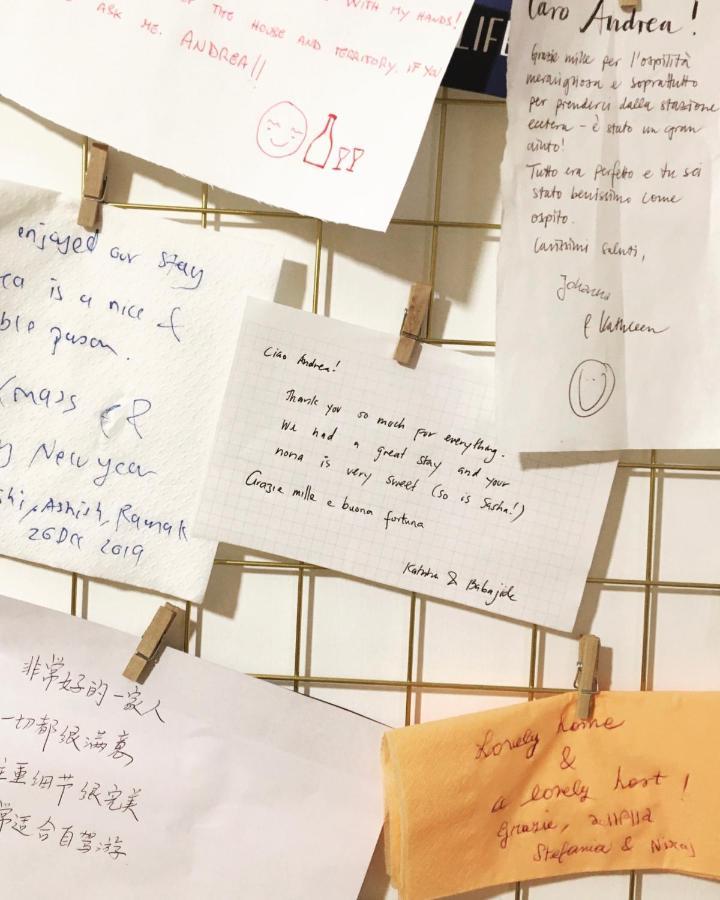 WITH MY HANDS!
OF THE HOUSE AND TERRITORY. IF YOU
ASK ME. ANDREA!!
LIFE
Caro Andrea!
Grazie mille per l'ospilità
meravigliosa e soprattutto
per prenderci dalla stazione
eccetera - è stato un gran
aiuto!
Tutto era perfetto e tu sei
stato benissimo come
ospito.
Carissimi saluti,
Johanna
& Kathleen
enjoyed our stay
is a nice &
person.
Xmass &
New year
Ashish, Raunak
26 Dec 2019
Ciao Andrea!
Thank you so much for everything.
We had a great stay and your
nona is very sweet (so is Sasha!)
Grazie mille e buona fortuna
& Babajide
非常好的一家人
一切都很满意
注重细节很完美
常适合自驾游
Lovely home
&
a lovely host!
Grazie,
Stefania &